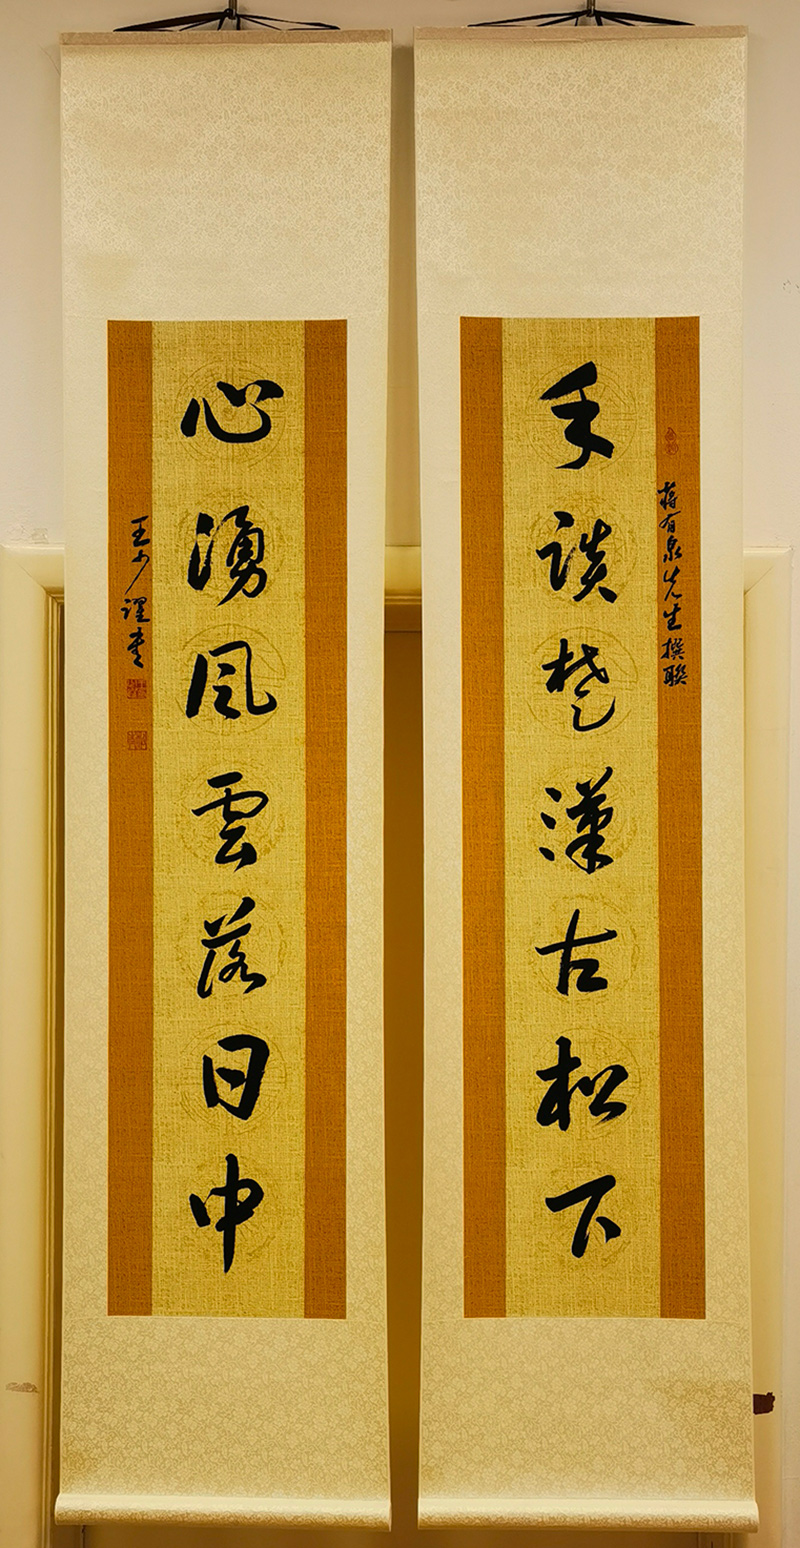 蔣有泉先生撰聯
手談楚漢古松下
心湧風雲落日中
王少書